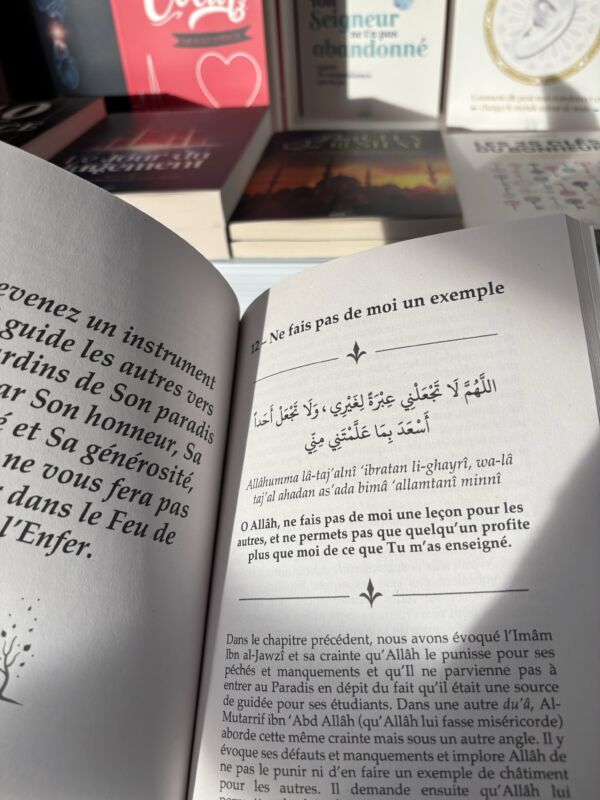 Cœur
Seigneur
ne t'a pas
abandonné
Le Jour du
Jugement
LES 35 CLÉS
DU BONHEUR
evenez un instrument
guide les autres vers
rdins de Son paradis
ar Son honneur, Sa
é et Sa générosité,
ne vous fera pas
dans le Feu de
l'Enfer.
12 – Ne fais pas de moi un exemple
اللَّهُمَّ لَا تَجْعَلْنِي عِبْرَةً لِغَيْرِي، وَلَا تَجْعَلْ أَحَداً
أَسْعَدَ بِمَا عَلَّمْتَنِي مِنِّي
Allâhumma lâ-taj'alnî 'ibratan li-ghayrî, wa-lâ
taj'al ahadan as'ada bimâ 'allamtanî minnî
O Allâh, ne fais pas de moi une leçon pour les
autres, et ne permets pas que quelqu'un profite
plus que moi de ce que Tu m'as enseigné.
Dans le chapitre précédent, nous avons évoqué l'Imâm
Ibn al-Jawzî et sa crainte qu'Allâh le punisse pour ses
péchés et manquements et qu'Il ne parvienne pas à
entrer au Paradis en dépit du fait qu'il était une source
de guidée pour ses étudiants. Dans une autre du'â, Al-
Mutarrif ibn 'Abd Allâh (qu'Allâh lui fasse miséricorde)
aborde cette même crainte mais sous un autre angle. Il y
évoque ses défauts et manquements et implore Allâh de
ne pas le punir ni d'en faire un exemple de châtiment
pour les autres. Il demande ensuite qu'Allâh lui